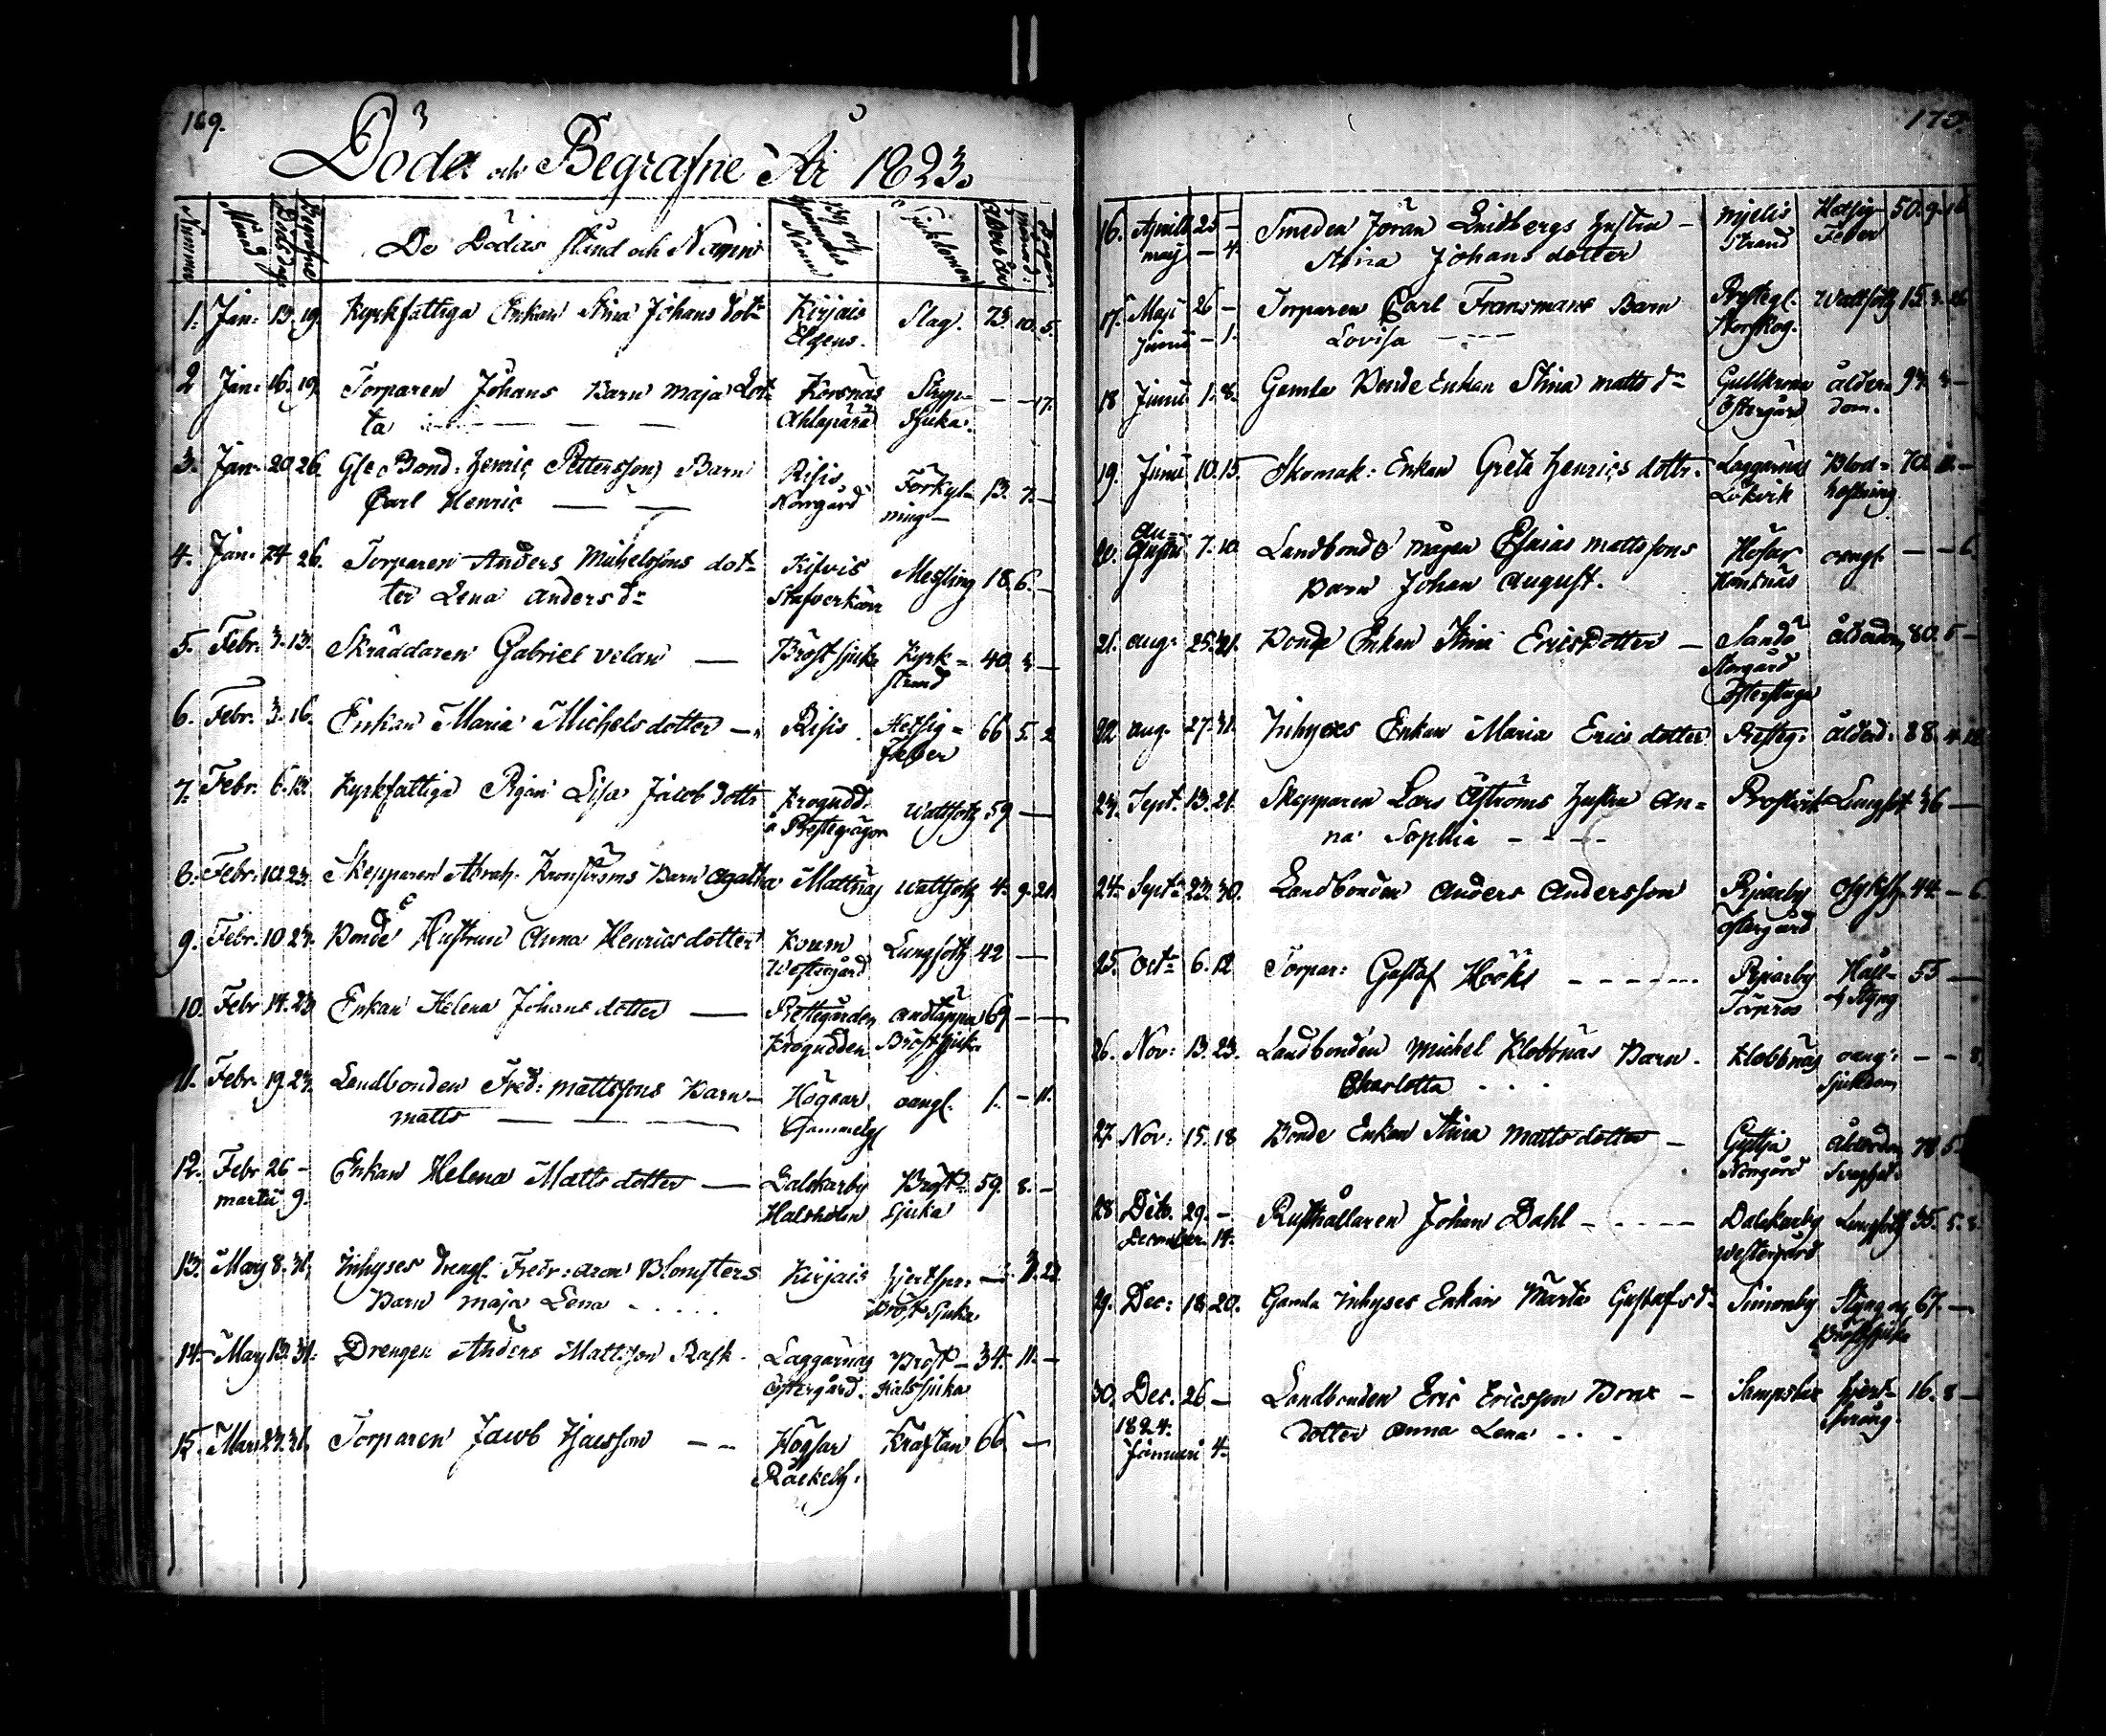 169.
Döda och Begrafne År 1823.
Nummer Månad Död dag Begrafne De Dödas stånd och Namn By och Hemmans Namn Sjukdomen Ålders år månad: Dagar
1. Jan: 13. 19. Kyrkfattiga Enkan Stina Johans dotr Kirjais Slag. 73. 10. 5.
Elgens.
2 Jan: 16. 19. Torparen Johans Barn Maja Lot= Korsnäs Stryp= — — 17.
ta — — — Ahlapärä Sjuka.
3. Jan: 20. 26. Gle Bond: Henric Pettersons Barn Risis Förkyl= 13. 7. —
Carl Henric — — Norrgård ning —
4. Jan: 24. 26. Torparen Anders Michelsons dot= Kifvis Messling 18. 6. —
ter Lena Anders dr
5. Febr. 3. 13. Skräddaren Gabriel Velan — Bröstsjuka Kyrk= 40. 3. —
strand
6. Febr. 3. 16. Enkan Maria Michelsdotter — Risis Hetsig= 66 5. 2
Feber
7. Febr. 6. Kyrkfattiga Pigan Lisa Jacobs dottr Krogudd. Wattsotz 59 —
å Prestegården
8. Febr. 10. 23. Skepparen Abrah. Kronströms Barn Agatha Mattnäs Wattsotz 4. 9. 21.
9. Febr. 10. 23. Bonde Hustrun Anna Henricsdotter Lungsotz 42 —
Westergård
10. Febr 14. 23. Enkan Helena Johans dotter — Prestegården Andtäppa 69 — —
Krogudden Bröstsjuka
11. Febr. 19. 23. Landbonden Fred: Mattssons Barn — Högsar oangf. 1. — 11.
Matts — — — Gammelg
12. Febr 26 — Enkan Helena Matts dotter — Dalskarby Bröst= 59. 8. —
martii 9. Halsholm Sjuka
13. Mars 8. 31. Inhyses Drengs. Fredr: Aron Blomsters Kirjais — 3. 22
Barn Maja Lena . . . . . Bröst Sjuka
14. Mars 13. 31. Drengen Anders Mattsson Rask. Laggarnäs Bröst — 34. 11. —
Östergård. Halssjuka
15. Mars 23. 31. Torparen Jacob Isacsson — — Högsar Kräftan 66. —
170.
16. Aprill 25 — Smeden Jöran Lindbergs Hustru — Mjelis Hetsig 50. 9. 16
maj — 4. Stina Johans dotter Strand Feber
17. Maji 26 — Torparen Carl Fransmans Barn Prestegl. Wattsotz 15. 3. 26
Junii — 1. Lovisa — . —
18 Junii 1. 8. Gamla Bonde Enkan Stina Matts dr Gullkrona Ålder= 94. 3 —
Östergård dom.
19. Junii 10. 15. Skomak: Enkan Greta Henrics dottr. Laggarnäs Blod= 70. 11. —
Lökvik hostning
20. Au= 7. 10 Landbonde mågen Esaias Mattssons Högsar oangf. — — 6.
gusti Barn Johan August.
21. Aug: 25. 31. Bonde Enkan Stina Ericsdotter — Sandö Ålderdom 80. 5 —
Storgård
Österstuga
22 Aug. 27. 31. Inhyses Enkan Maria Erics dotter Presteg: Ålderd. 88. 4. 12
23. Sept. 13. 21. Skepparen Lars Åströms Hustru An= Prostvik Lungsot 36 —
na Sophia — — —
24. Sept: 23. 30. Landbonden Anders Andersson Pjuarby 44 — 6.
Östergård
25. Octr 6. 12 Torpar: Gustaf Höök — — — — Håll= 55 —
& Styng
26. Nov: 13. 23. Landbonden Michel Klobbnäs Barn. Klobbnäs oang: — — 8.
Charlotta . . . sjukdom
27. Nov: 15. 18 Bonde Enkan Stina Matts dotter — Gyttja Ålderdom 78 5.
Norrgård Svaghet.
28 Dito. 29. — Rusthållaren Johan Dahl — — — — Dalskarby Lungsotz 35. 5. 8.
December 14. Westergård
29. Dec: 18. 20. Gamla Inhyses Enkan Märta Gustafs dr Simonby Styng och 67. —
Bröstsjuka
30. Dec. 26. — Landbonden Eric Ericsson Bonx — 16. 8 —
1824. dotter Anna Lena . . . språng.
Januari 4.